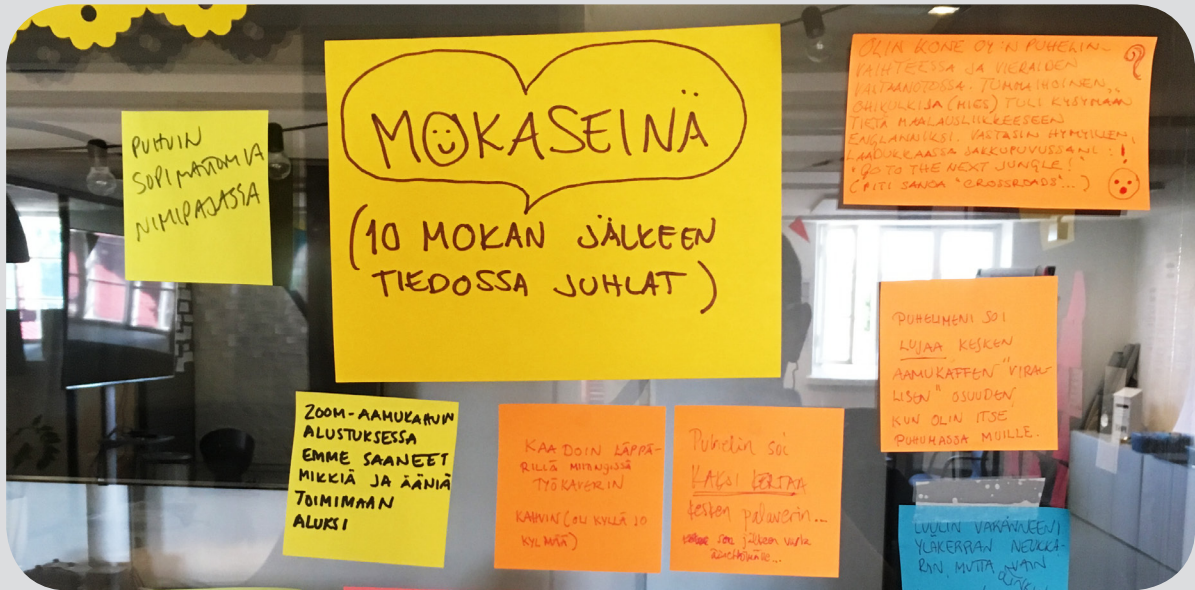 MOKASEINÄ
(10 MOKAN JÄLKEEN
TIEDOSSA JUHLAT)
PUHUIN
SOPIMATTOMIA
NIMIPAJASSA
OLIN KONE OY:N PUHELIN-
VAIHTEESSA JA VIERAIDEN
VASTAANOTOSSA. TUMMAIHOINEN
OHIKULKIJA (MIES) TULI KYSYMÄÄN
TIETÄ MAALAUSLIIKKEESEEN
ENGLANNIKSI. VASTASIN HYMYILLEN,
LAADUKKAASSA JAKKUPUVUSSANI:
"GO TO THE NEXT JUNGLE!"
(PITI SANOA "CROSSROADS"...)
PUHELIMENI SOI
LUJAA KESKEN
AAMUKAFFEN "VIRAL-
LISEN" OSUUDEN,
KUN OLIN ITSE
PUHUMASSA MUILLE.
ZOOM-AAMUKAHVIN
ALUSTUKSESSA
EMME SAANEET
MIKKIÄ JA ÄÄNIÄ
TOIMIMAAN
ALUKSI
KAADOIN LÄPPÄ-
RILLÄ MIITINGISSÄ
TYÖKAVERIN
KAHVIN (OLI KYLLÄ JO
KYLMÄÄ)
Puhelin soi
KAKSI KERTAA
kesken palaverin...
sen jälkeen vasta
LUULIN VARANNEENI
YLÄKERRAN NEUKKA-
RIN, MUTTA VAIN